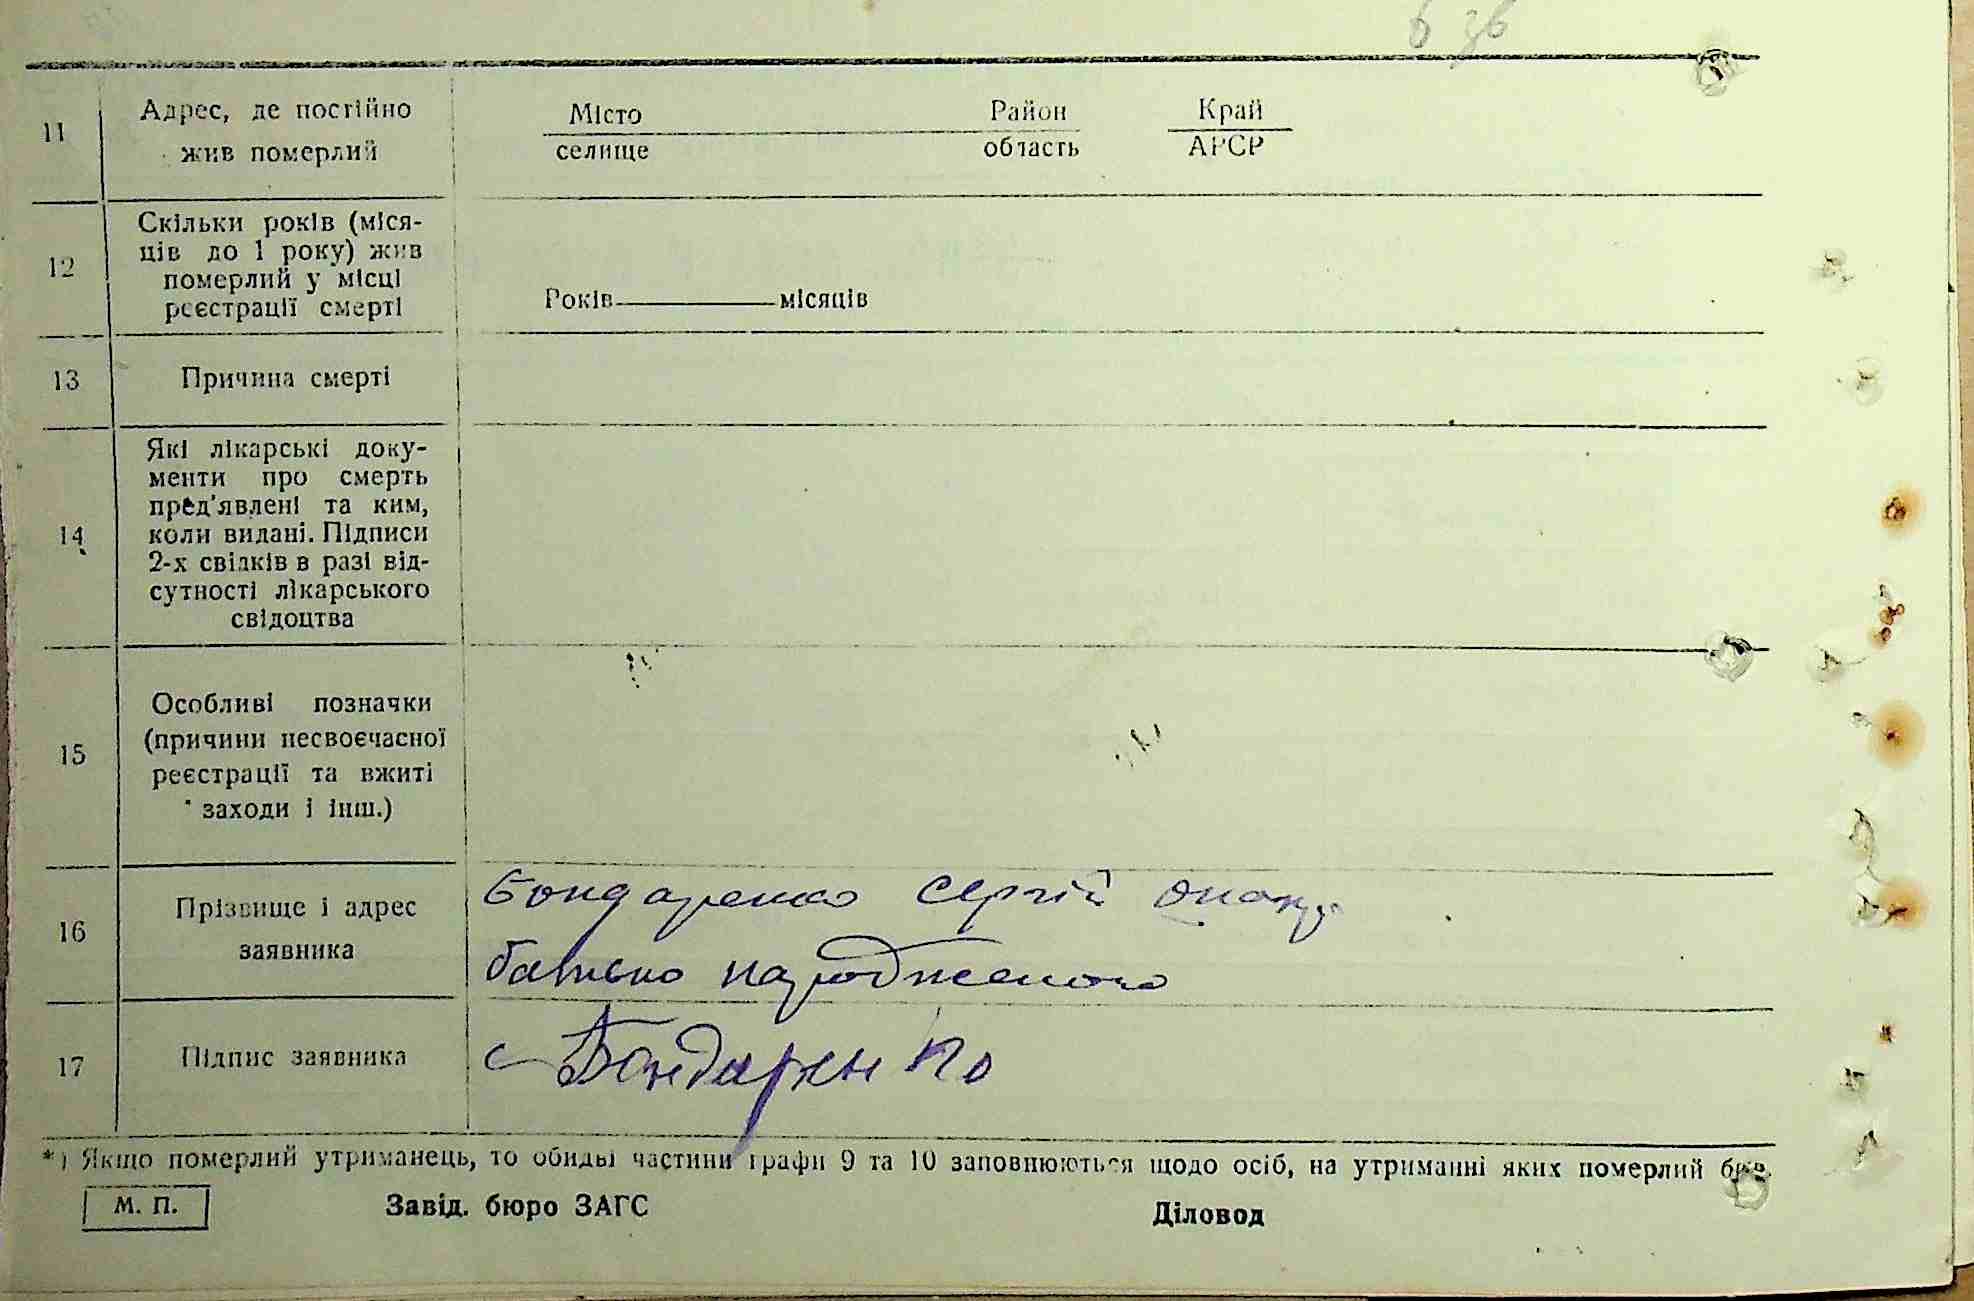 11
Адрес, де постійно
жив померлий
Місто Район Край
селище область АРСР
12
Скільки років (міся-
ців до 1 року) жив
померлий у місці
реєстрації смерті
Років місяців
13
Причина смерті
14
Які лікарські доку-
менти про смерть
пред'явлені та ким,
коли видані. Підписи
2-х свідків в разі від-
сутності лікарського
свідоцтва
15
Особливі позначки
(причини несвоєчасної
реєстрації та вжиті
заходи і інш.)
16
Прізвище і адрес
заявника
Бондаренко Сергій
батько народженого
17
Підпис заявника
Бондаренко
*) Якщо померлий утриманець, то обидві частини графи 9 та 10 заповнюються щодо осіб, на утриманні яких померлий був.
М. П.
Завід. бюро ЗАГС
Діловод